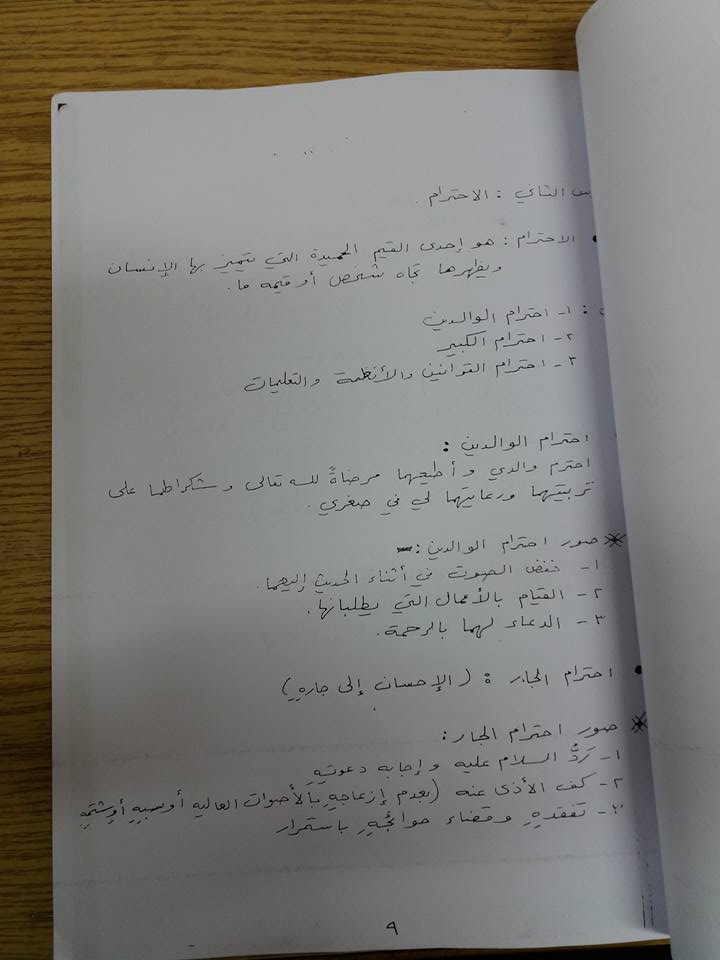 الثاني : الاحترام .
• الاحترام : هو إحدى القيم الحميدة التي يتميز بها الإنسان
ويظهرها تجاه شخص أو قيمه ما .
: ١- احترام الوالدين
٢- احترام الكبير
٣- احترام القوانين والأنظمة والتعليمات
احترام الوالدين :
احترم والدي وأطيعهما مرضاةً لله تعالى وشكراً لهما على
تربيتهما ورعايتهما لي في صغري .
صور احترام الوالدين :
١- خفض الصوت في أثناء الحديث إليهما .
٢- القيام بالأعمال التي يطلبانها .
٣- الدعاء لهما بالرحمة .
• احترام الجار : (الإحسان إلى جارهِ)
صور احترام الجار :
١- رَدُّ السلام عليه وإجابه دعوتِهِ
٢- كف الأذى عنه (بعدم إزعاجهِ بالأصوات العاليه أو سبهِ أو شتمهِ
٣- تفقدهِ وقضاء حوائجُهِ باستمرار
٩